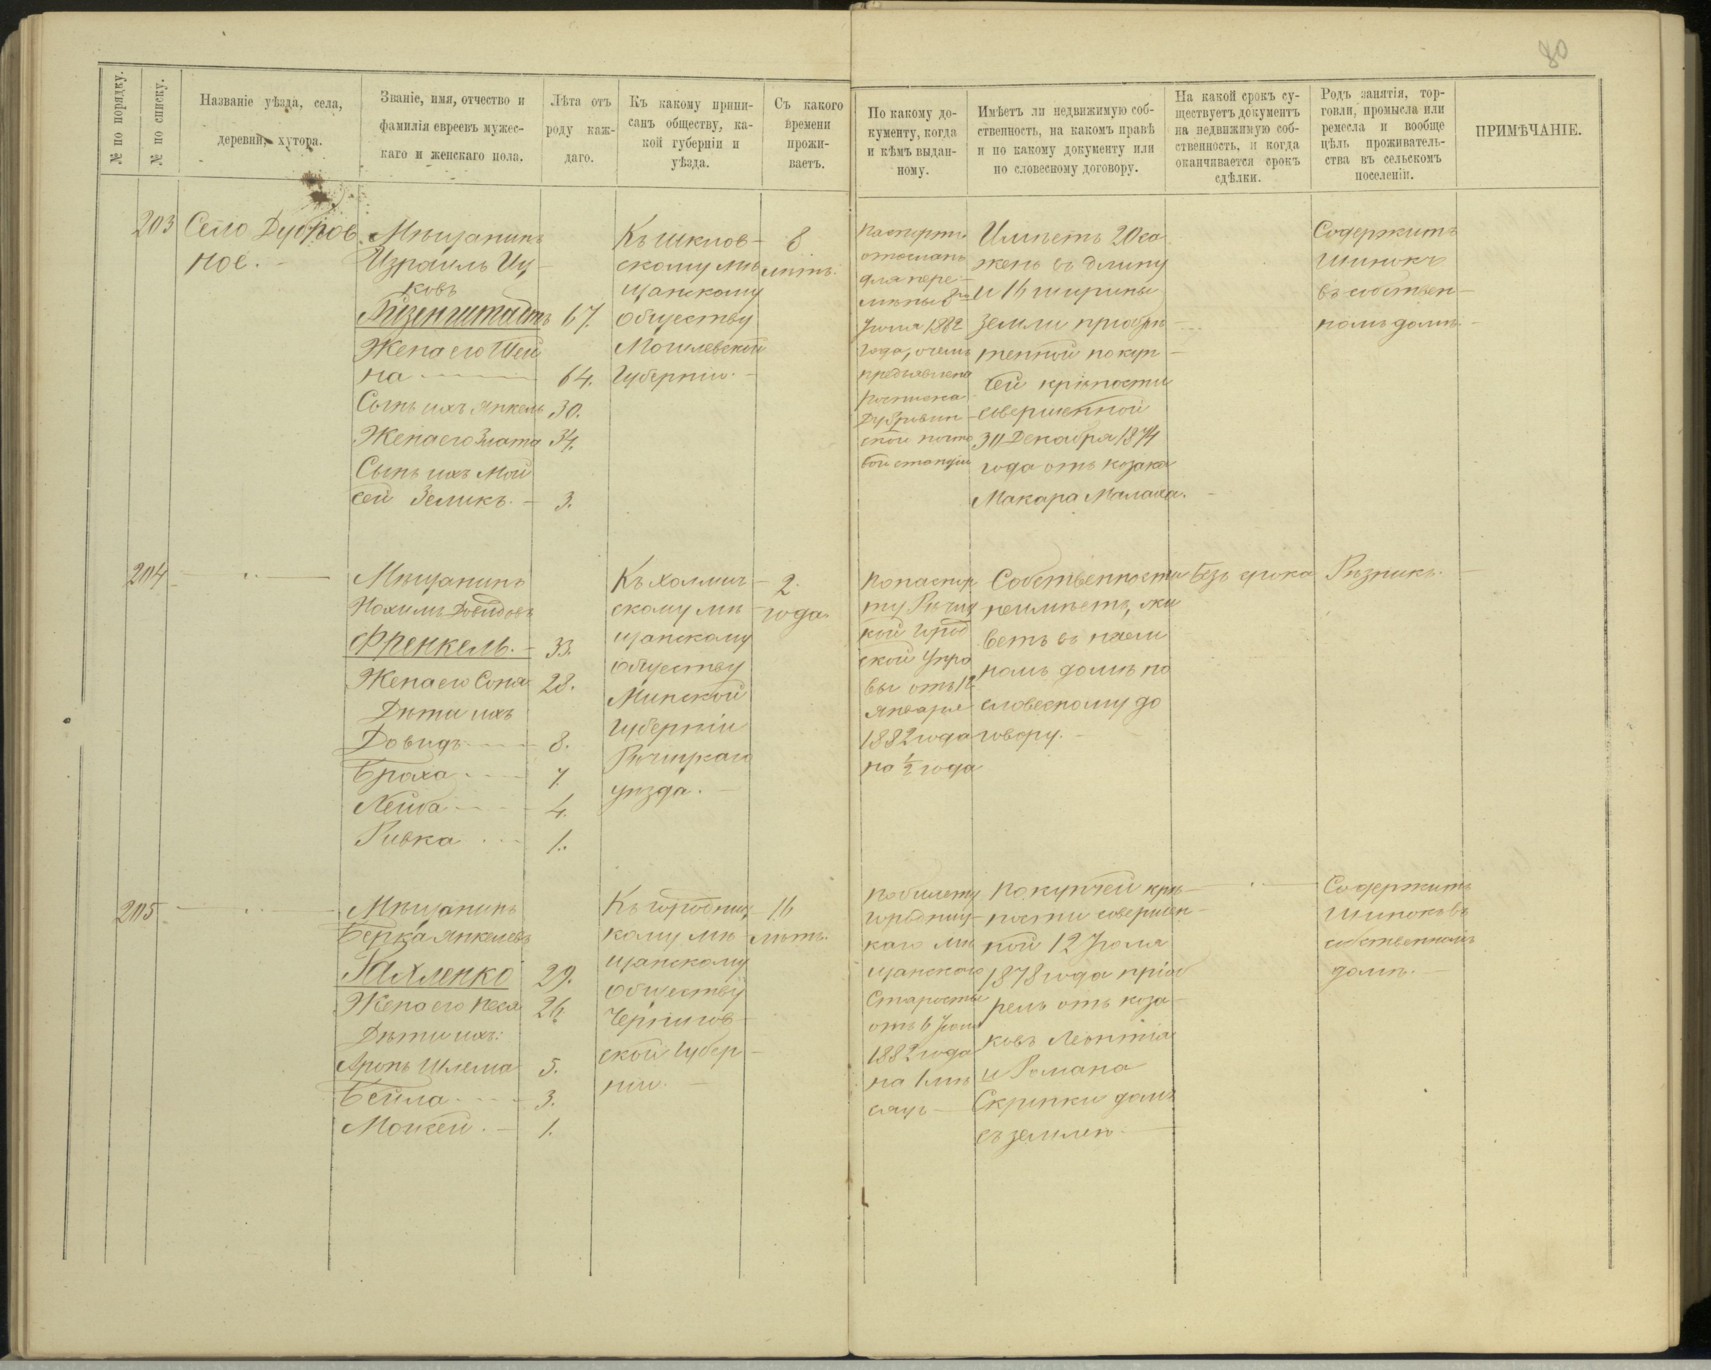 80
№ по порядку.
№ по списку.
Названіе уѣзда, села,
деревни, хутора.
Званіе, имя, отчество и
фамилія евреевъ мужес-
каго и женскаго пола.
Лѣта отъ
роду каж-
даго.
Къ какому припи-
санъ обществу, ка-
кой губерніи и
уѣзда.
Съ какого
времени
прожи-
ваетъ.
По какому до-
кументу, когда
и кѣмъ выдан-
ному.
Имѣетъ ли недвижимую соб-
ственность, на какомъ правѣ
и по какому документу или
по словесному договору.
На какой срокъ су-
ществуетъ документъ
на недвижимую соб-
ственность, и когда
оканчивается срокъ
сдѣлки.
Родъ занятія, тор-
говли, промысла или
ремесла и вообще
цѣль проживатель-
ства въ сельскомъ
поселеніи.
ПРИМѢЧАНІЕ.
203
Село Дубров
ное.
Мѣщанинъ
Израиль Иц
ковъ
67.
Жена его Шей
на 64.
Сынъ ихъ Янкель 30.
Жена его Злата 34.
Сынъ ихъ Мой
сей Зеликъ. 3.
Къ шклов-
скому мѣ
щанскому
обществу
Могилевской
Губерніи.
8
лѣтъ.
Паспортъ
отосланъ
для пере-
мѣны 8го
Іюля 1882
года, о чемъ
предъявлена
росписка
ской почто
вой станціи
Имѣетъ 20 са
жень въ длину
и 16 ширины
земли пріобрѣ-
тенной по куп-
чей крѣпости
совершенной
30 Декабря 1874
года отъ козака
Макара Малаха.
Содержитъ
шинокъ
въ собствен-
номъ домѣ.
204
Мѣщанинъ
Нохимъ Довидовъ
Френкель. 33.
Жена его Сона 28.
Дѣти ихъ
Довидъ 8.
Броха 7.
Лейба 4.
Ривка 1.
Къ холмич-
скому мѣ-
щанскому
обществу
Минской
губерніи
Рѣчицкаго
уѣзда.
2.
года.
По паспор
ту Рѣчиц
кой Город
ской Упра
вы отъ 12
Января
1882 года
на ½ года
Собственности
не имѣетъ, жи
ветъ въ наем
номъ домѣ по
словесному до
говору.
Безъ срока
Рѣзникъ.
205
Мѣщанинъ
Берка Янкелевъ
Рахленко 29.
Жена его Песя 26.
Дѣти ихъ:
Аронъ Шлема 5.
Бейла 3.
Мойсей. 1.
Къ городниц
кому мѣ
щанскому
обществу
Чернигов-
ской Губер-
ніи.
16
лѣтъ.
По билету
Городниц-
каго мѣ
щанскаго
Старосты
отъ 6 Іюля
1882 года
на 1 мѣ
сяцъ
По купчей крѣ-
пости совершен-
ной 12 Іюля
1878 года пріоб
релъ отъ коза-
ковъ Леонтія
и Романа
Скрипки домъ
съ землею.
Содержитъ
шинокъ въ
собственномъ
домѣ.